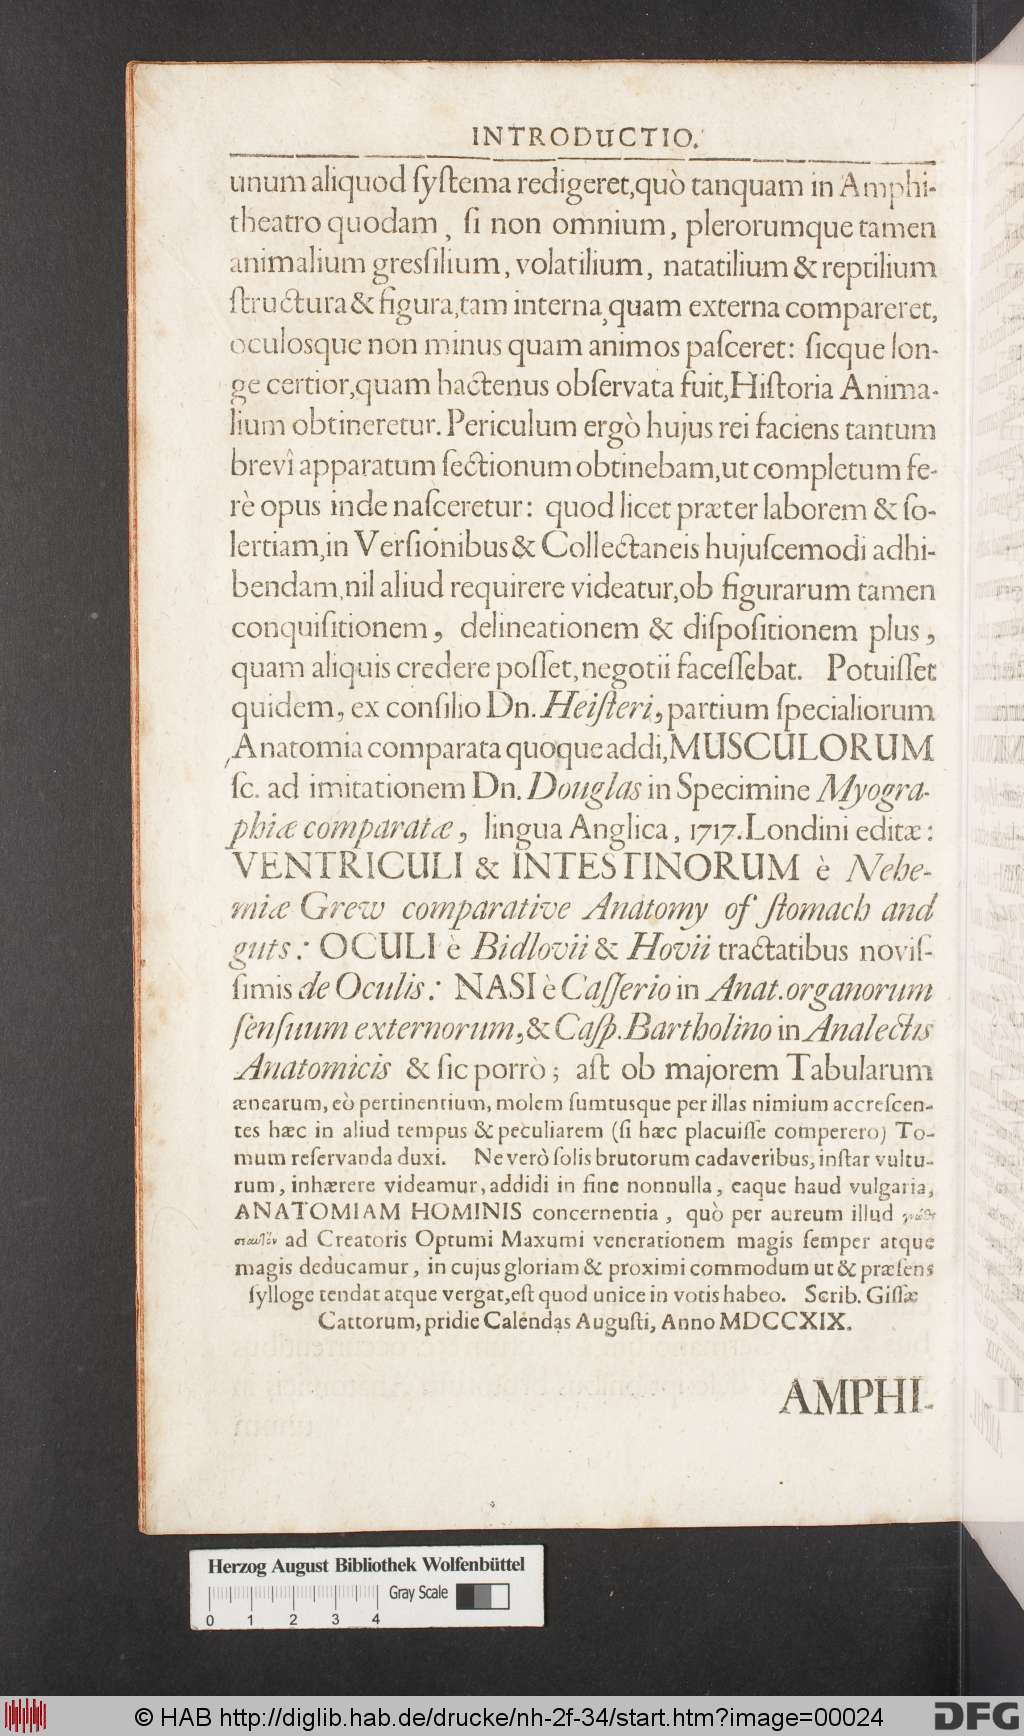 INTRODUCTIO.
unum aliquod ſyſtema redigeret, quò tanquam in Amphi-
theatro quodam, ſi non omnium, plerorumque tamen
animalium gresſilium, volatilium, natatilium & reptilium
ſtructura & figura, tam interna, quam externa compareret,
oculosque non minus quam animos paſceret: ſicque lon-
ge certior, quam hactenus obſervata fuit, Hiſtoria Anima-
lium obtineretur. Periculum ergò hujus rei faciens tantum
brevî apparatum ſectionum obtinebam, ut completum fe-
rè opus inde naſceretur: quod licet præter laborem & ſo-
lertiam, in Verſionibus & Collectaneis hujuſcemodi adhi-
bendam, nil aliud requirere videatur, ob figurarum tamen
conquiſitionem, delineationem & diſpoſitionem plus,
quam aliquis credere poſſet, negotii faceſſebat. Potuiſſet
quidem, ex conſilio Dn. Heiſteri, partium ſpecialiorum
Anatomia comparata quoque addi, MUSCULORUM
ſc. ad imitationem Dn. Douglas in Specimine Myogra-
phiæ comparatæ, lingua Anglica, 1717. Londini editæ:
VENTRICULI & INTESTINORUM è Nehe-
miæ Grew comparative Anatomy of ſtomach and
guts: OCULI è Bidlovii & Hovii tractatibus noviſ-
ſimis de Oculis: NASI è Caſſerio in Anat. organorum
ſenſuum externorum, & Caſp. Bartholino in Analectis
Anatomicis & ſic porrò; aſt ob majorem Tabularum
ænearum, eò pertinentium, molem ſumtusque per illas nimium accreſcen-
tes hæc in aliud tempus & peculiarem (ſi hæc placuiſſe comperero) To-
mum reſervanda duxi. Ne verò ſolis brutorum cadaveribus, inſtar vultu-
rum, inhærere videamur, addidi in fine nonnulla, eaque haud vulgaria,
ANATOMIAM HOMINIS concernentia, quò per aureum illud
ad Creatoris Optumi Maxumi venerationem magis ſemper atque
magis deducamur, in cujus gloriam & proximi commodum ut & præſens
ſylloge tendat atque vergat, eſt quod unice in votis habeo. Scrib. Giſſæ
Cattorum, pridie Calendas Auguſti, Anno MDCCXIX.
AMPHI-
Herzog August Bibliothek Wolfenbüttel
Gray Scale
0 1 2 3 4
© HAB http://diglib.hab.de/drucke/nh-2f-34/start.htm?image=00024
DFG